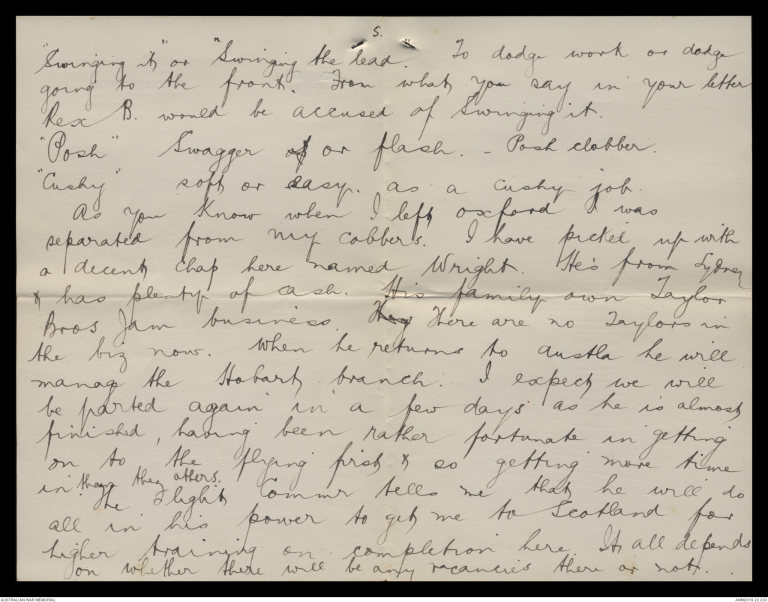 5.
"Swinging it" or "Swinging the lead. To dodge work or dodge
going to the front. From what you say in your letter
Rex B. would be accused of swinging it.
"Posh" Swagger or flash. - Posh clobber.
"Cushy" soft or easy. as a cushy job.
As you know when I left oxford I was
separated from my cobbers. I have picked up with
a decent chap here named Wright. He's from Sydney
& has plenty of cash. His family own Taylor
Bros Jam business. There are no Taylors in
the biz now. When he returns to Austla he will
manag the Hobart branch. I expect we will
be parted again in a few days as he is almost
finished, having been rather fortunate in getting
on to the flying first & so getting more time
in than the others.
The Flight Commr tells me that he will do
all in his power to get me to Scotland for
higher training on completion here. It all depends
on whether there will be any vacancies there or not.
AUSTRALIAN WAR MEMORIAL